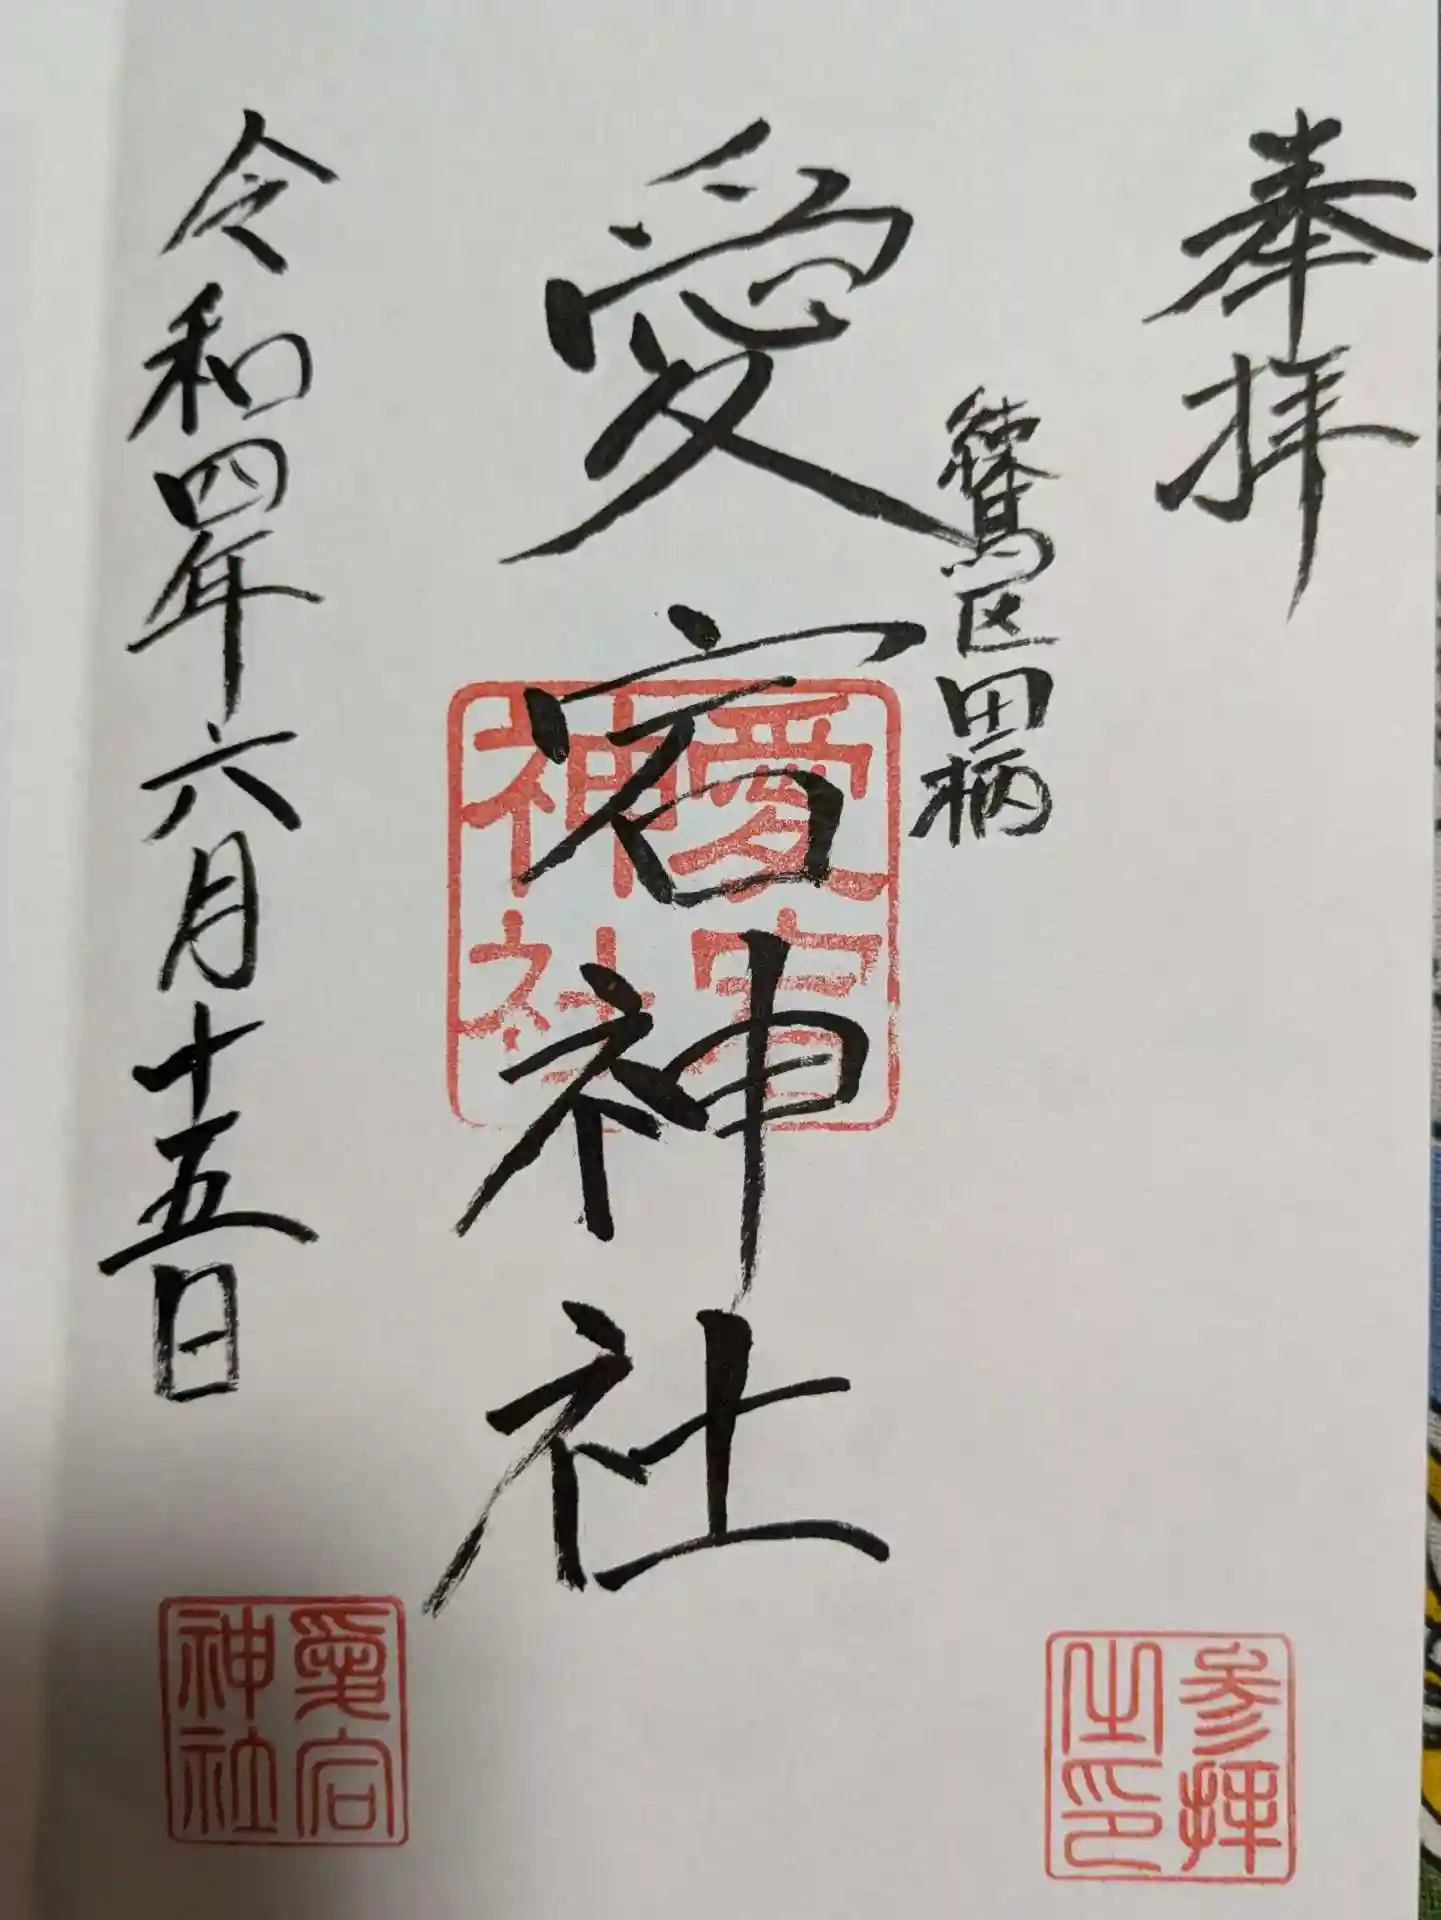 奉拝
練馬区田柄
愛宕神社
令和四年六月十五日
愛宕
神社
参拝
之印
愛宕
神社